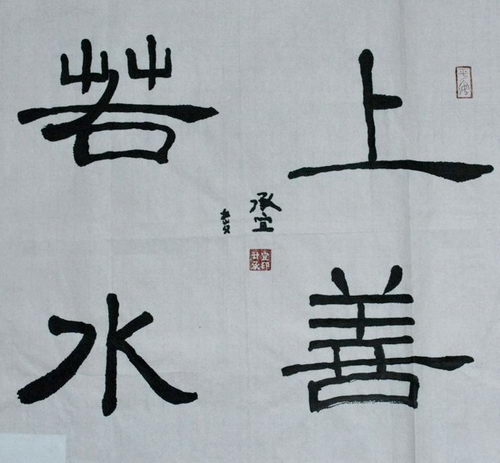 上善
若水
承宜